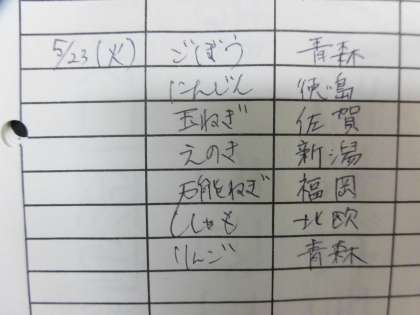 5/23(火) ごぼう 青森
にんじん 徳島
玉ねぎ 佐賀
えのき 新潟
万能ねぎ 福岡
ししゃも 北欧
りんご 青森